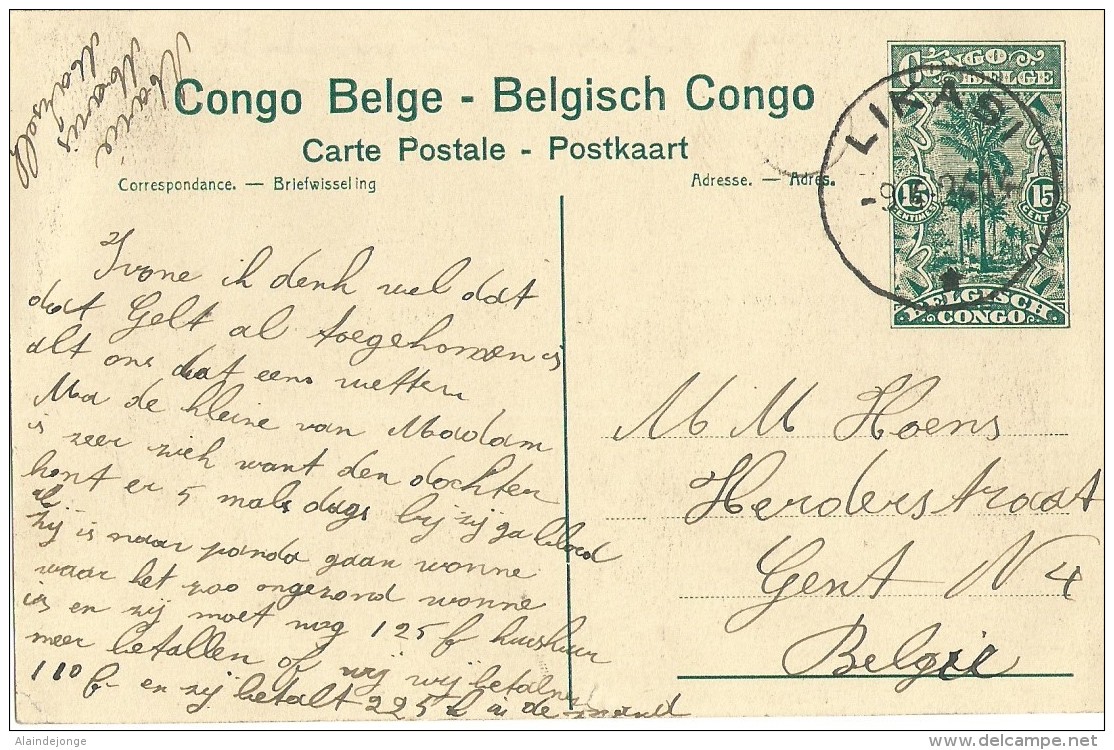 Marie
Maris
Congo Belge - Belgisch Congo
Carte Postale - Postkaart
Correspondance. — Briefwisseling
Adresse. — Adres.
CONGO
BELGE
15
CENTIMES
15
BELGISCH
CONGO
LIKASI
Yvone ik denk wel dat
dat Gelt al toegekomen is
alt ons dat eens wetten
Ma de kleine van Madam
is zeer ziek want den dochter
komt er 5 mals dags bij zij ga bloed
zij is naar panda gaan wonne
waar het zoo ongezond wonne
is en zij moet nog 125 f huishuur
meer betallen of wij wij betalne
110 f en zij betalt 225 in de maand
M M Hoens
Herderstraat
Gent N 4
Belgie
Alaindejonge
delcampe.net